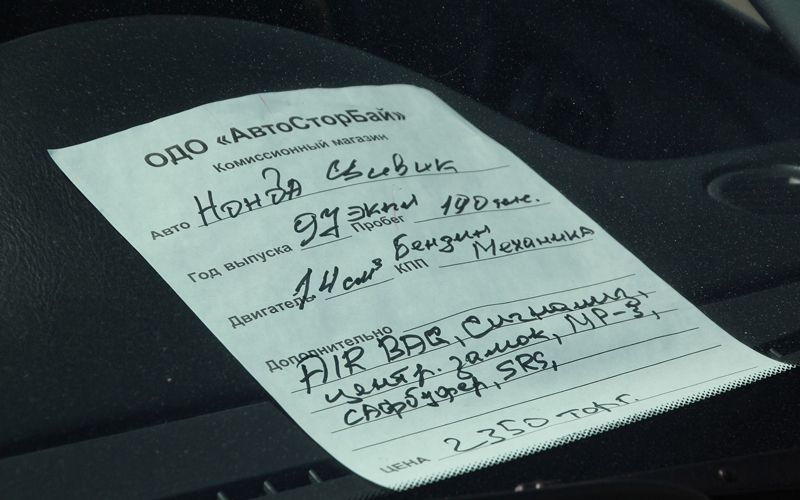 ОДО «АвтоСторБай»
Комиссионный магазин
Авто Хонда Сывик
Год выпуска 97 экпл Пробег 190 тыс.
Двигатель 14 см³ Бензин КПП Механика
Дополнительно
AIR BAG, Сигнализ,
центр. замок, MP-3,
САфбуфер, SRS,
ЦЕНА 2350 торг.